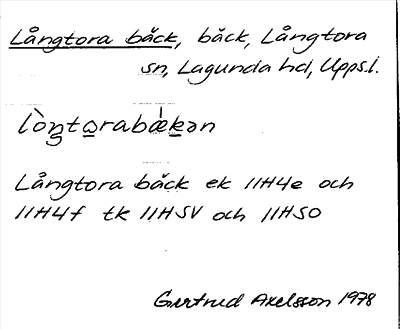 Långtora bäck, bäck, Långtora
sn, Lagunda hd, Upps.l.
lòŋtω̱rabǽḵən
Långtora bäck ek 11H4e och
11H4f tk 11HSV och 11HSO
Gertrud Axelsson 1978